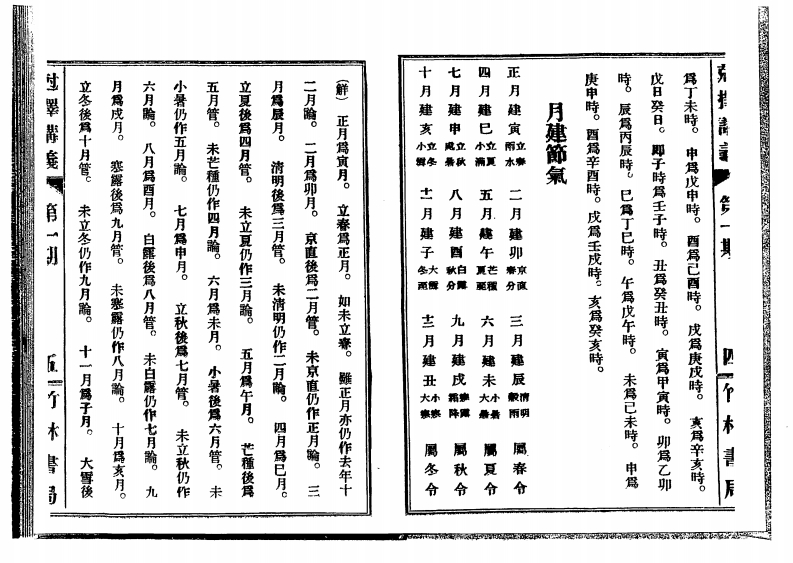 剋擇講義 第一期 四 竹林書局
爲丁未時。申爲戊申時。酉爲己酉時。戌爲庚戌時。亥爲辛亥時。
戊日癸日。卽子時爲壬子時。丑爲癸丑時。寅爲甲寅時。卯爲乙卯
時。辰爲丙辰時。巳爲丁巳時。午爲戊午時。未爲己未時。申爲
庚申時。酉爲辛酉時。戌爲壬戌時。亥爲癸亥時。
月建節氣
正月建寅立春雨水 二月建卯京直春分 三月建辰清明穀雨 屬春令
四月建巳立夏小滿 五月建午芒種夏至 六月建未小暑大暑 屬夏令
七月建申立秋處暑 八月建酉白露秋分 九月建戌寒露霜降 屬秋令
十月建亥立冬小雪 十一月建子大雪冬至 十二月建丑小寒大寒 屬冬令
(解) 正月爲寅月。立春爲正月。如未立春。雖正月亦仍作去年十
二月論。二月爲卯月。京直後爲二月管。未京直仍作正月論。三
月爲辰月。清明後爲三月管。未清明仍作二月論。四月爲巳月。
立夏後爲四月管。未立夏仍作三月論。五月爲午月。芒種後爲
五月管。未芒種仍作四月論。六月爲未月。小暑後爲六月管。未
小暑仍作五月論。七月爲申月。立秋後爲七月管。未立秋仍作
六月論。八月爲酉月。白露後爲八月管。未白露仍作七月論。九
月爲戌月。寒露後爲九月管。未寒露仍作八月論。十月爲亥月。
立冬後爲十月管。未立冬仍作九月論。十一月爲子月。大雪後
剋擇講義 第一期 五 竹林書局